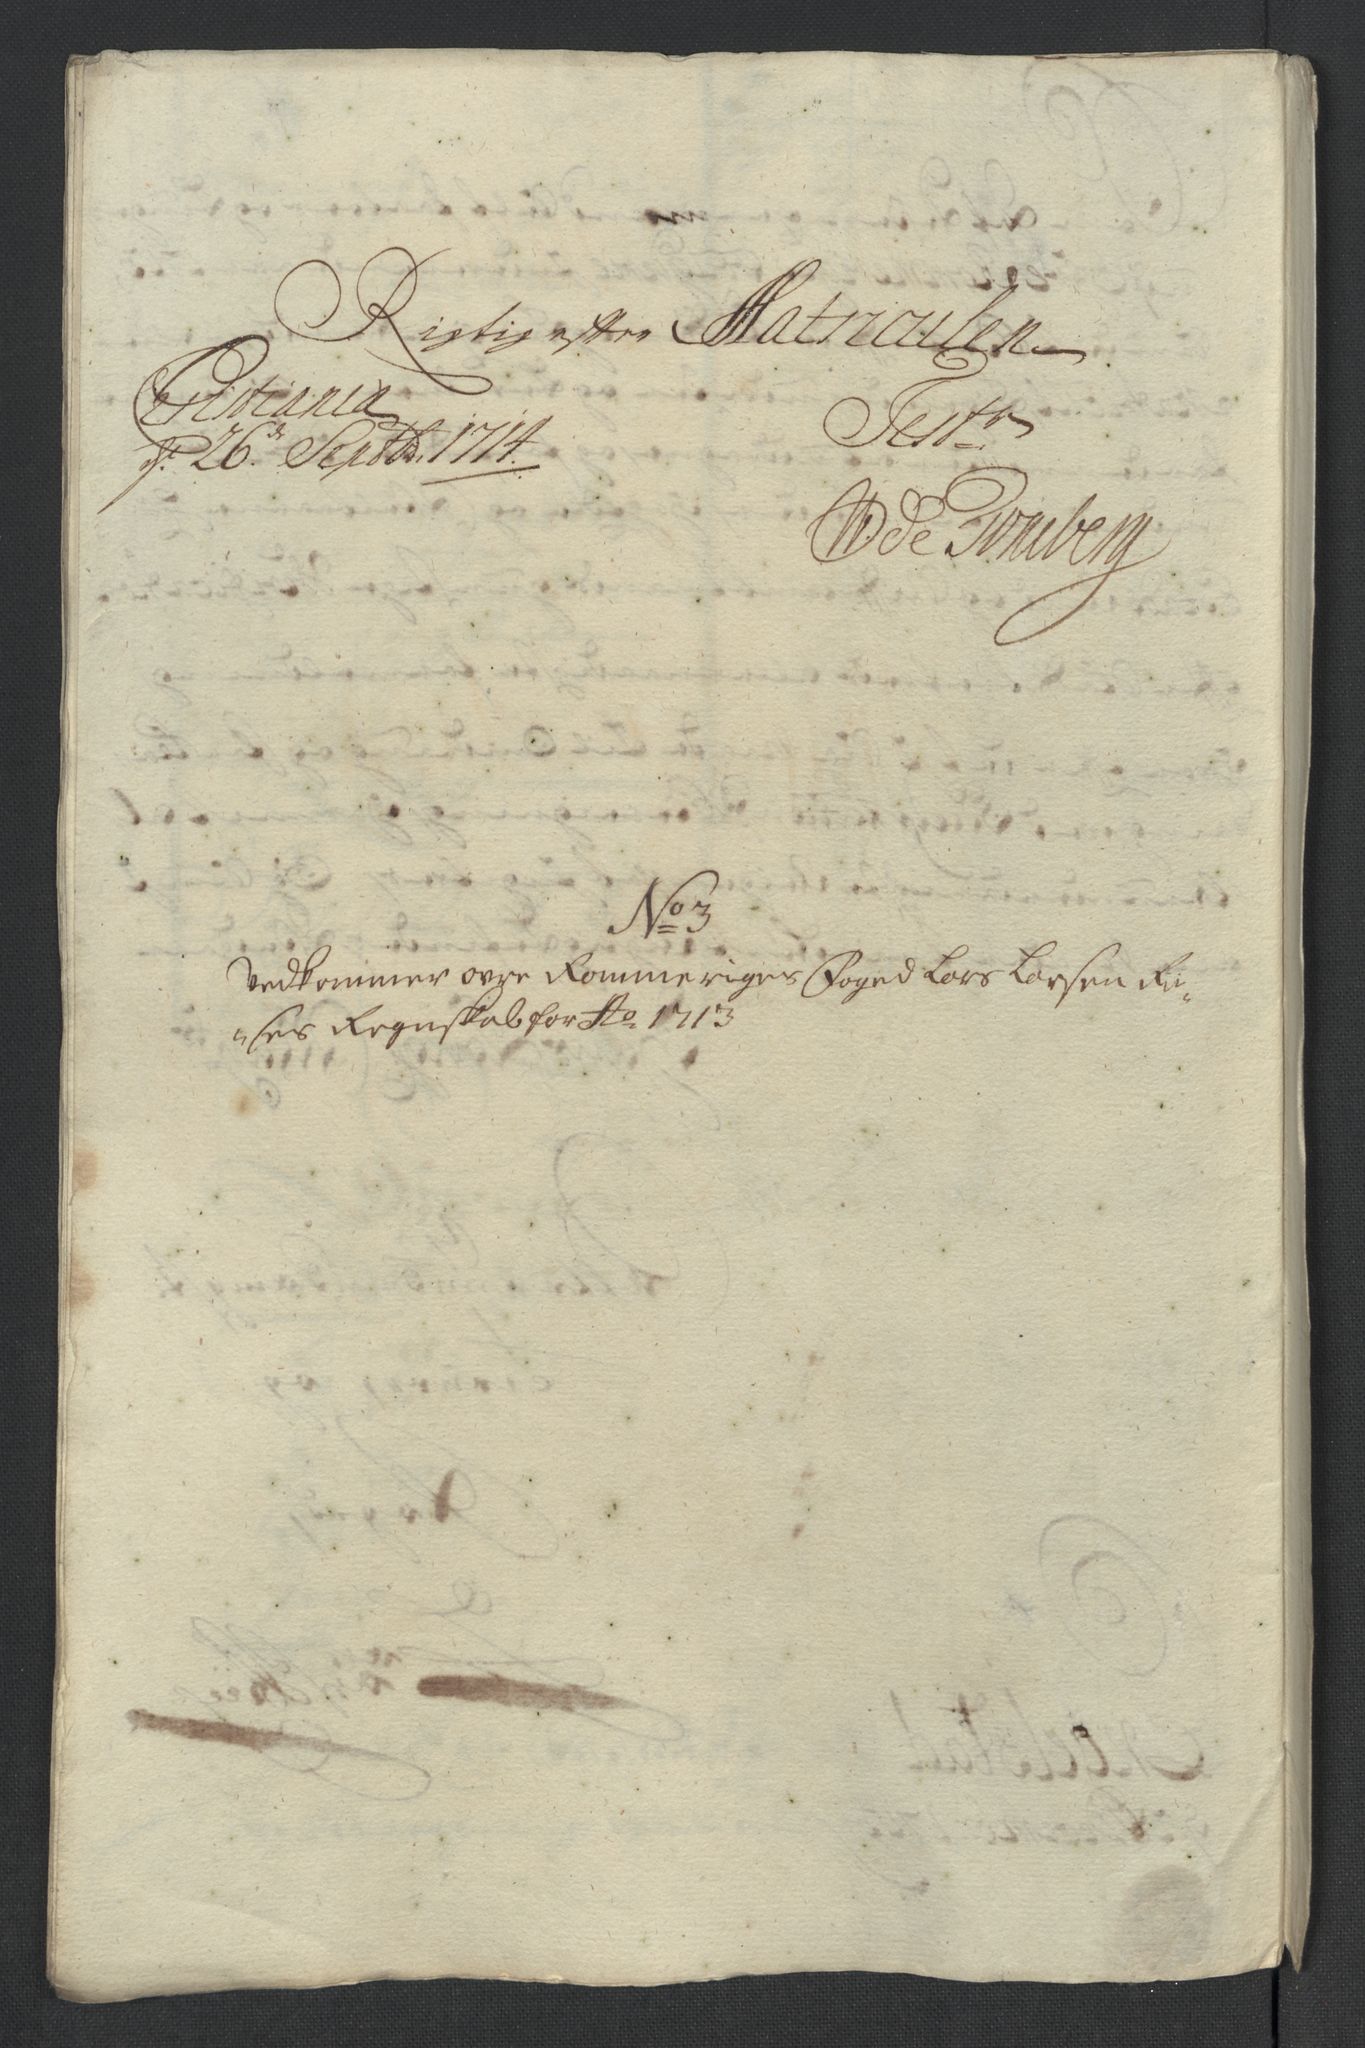 Rigtig efter Matriculen
Cristiania
d. 26.de Septbr. 1714.
Test:
W de Tonsberg
No 3
Vedkommer øvre Rommeriges Foged Lars Larsen Ri„
„ses Regnskab for Ao 1713